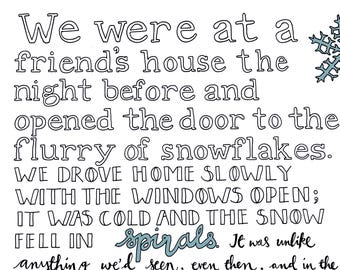 We were at a
friend's house the
night before and
opened the door to the
flurry of snowflakes.
WE DROVE HOME SLOWLY
WITH THE WINDOWS OPEN;
IT WAS COLD AND THE SNOW
FELL IN spirals. It was unlike
anything we'd seen, even then, and in the